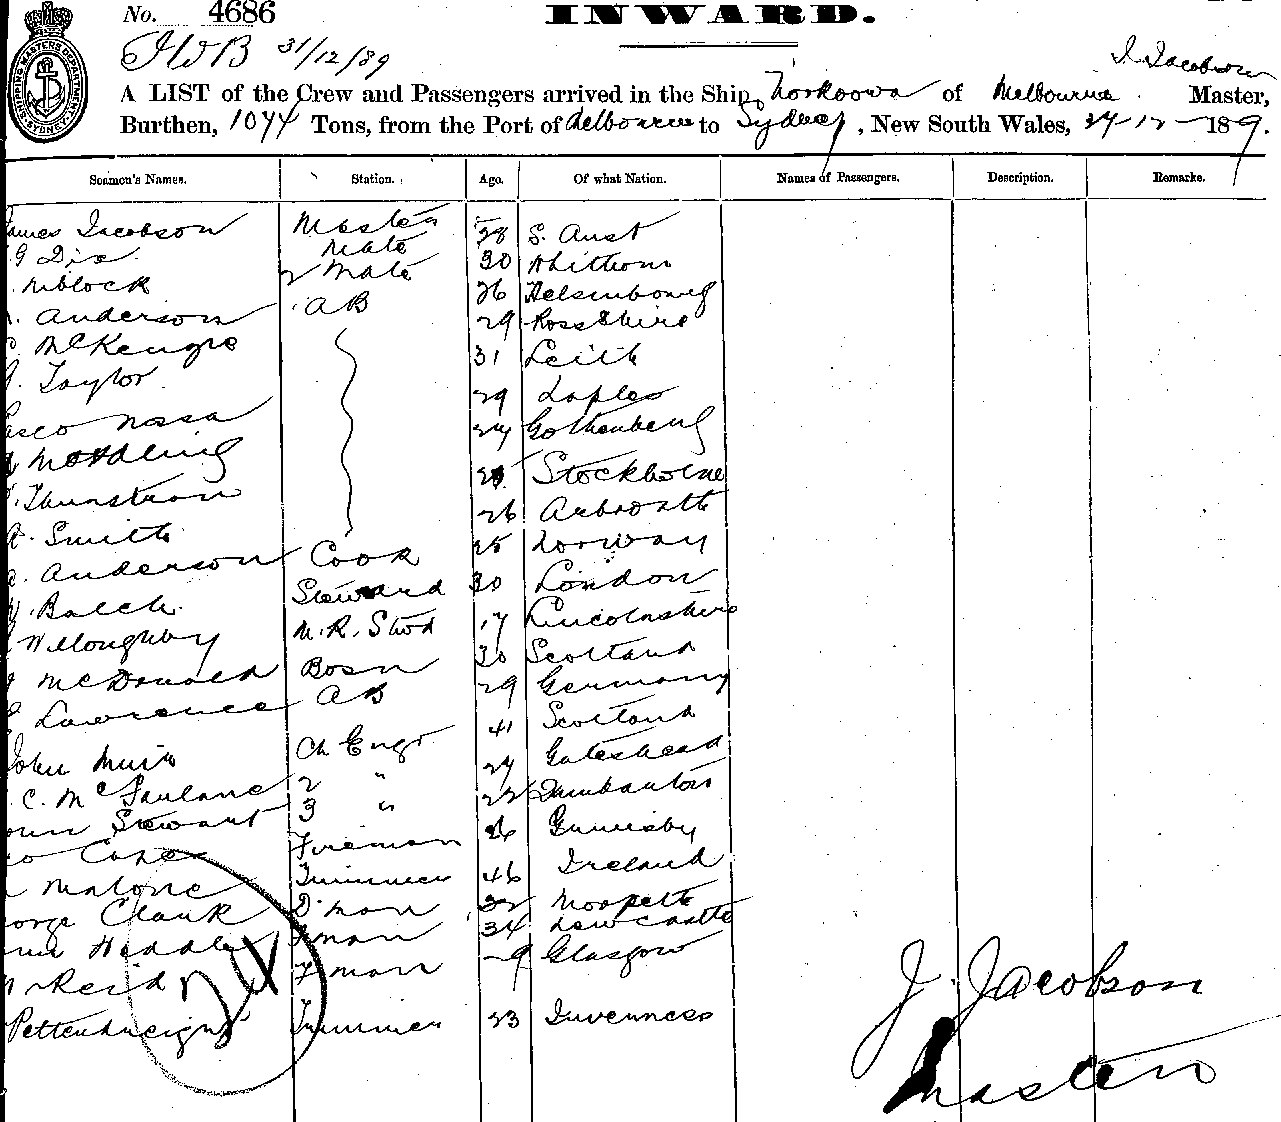 No. 4686
INWARD.
SHIPPING MASTERS DEPARTMENT SYDNEY
31/12/89
J. Jacobson
A LIST of the Crew and Passengers arrived in the Ship, of Melbourne. Master,
Burthen, 1074 Tons, from the Port of Melbourne to Sydney, New South Wales, 12 - 189.
Seamen's Names. Station. Age. Of what Nation. Names of Passengers. Description. Remarks.
James Jacobson Master 28 S. Aust
G Dix Mate 30
Niblock 2 Mate 26
Anderson AB 29 Ross Shire
McKenzie 31 Leith
Taylor 29 Naples
Nossa 24 Gothenberg
Stockholme
Thunstrom 26 Arbroath
A. Smith 25 Norway
Anderson Cook 30 London
Balch Steward 17 Lincolnshire
Willoughby M.R. Stwd 30 Scotland
McDonald Bosn 29 Germany
Lawrence AB 41 Scotland
John Muir Ch Engr Gateshead
C. McFarlane 2 " 22 Dumbarton
Stewart 3 " 26 Grimsby
Fireman 46 Ireland
Malone Trimmer 32
George Clark D'man 34 Newcastle
F'man Glasgow
Reid F'man
Trimmer 23 Invenness
24
J. Jacobson
Master